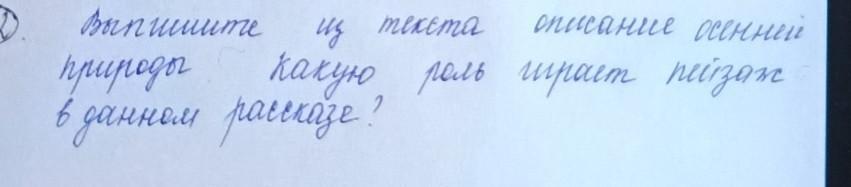 2). Выпишите из текста описание осенней
природы Какую роль играет пейзаж
в данном рассказе?